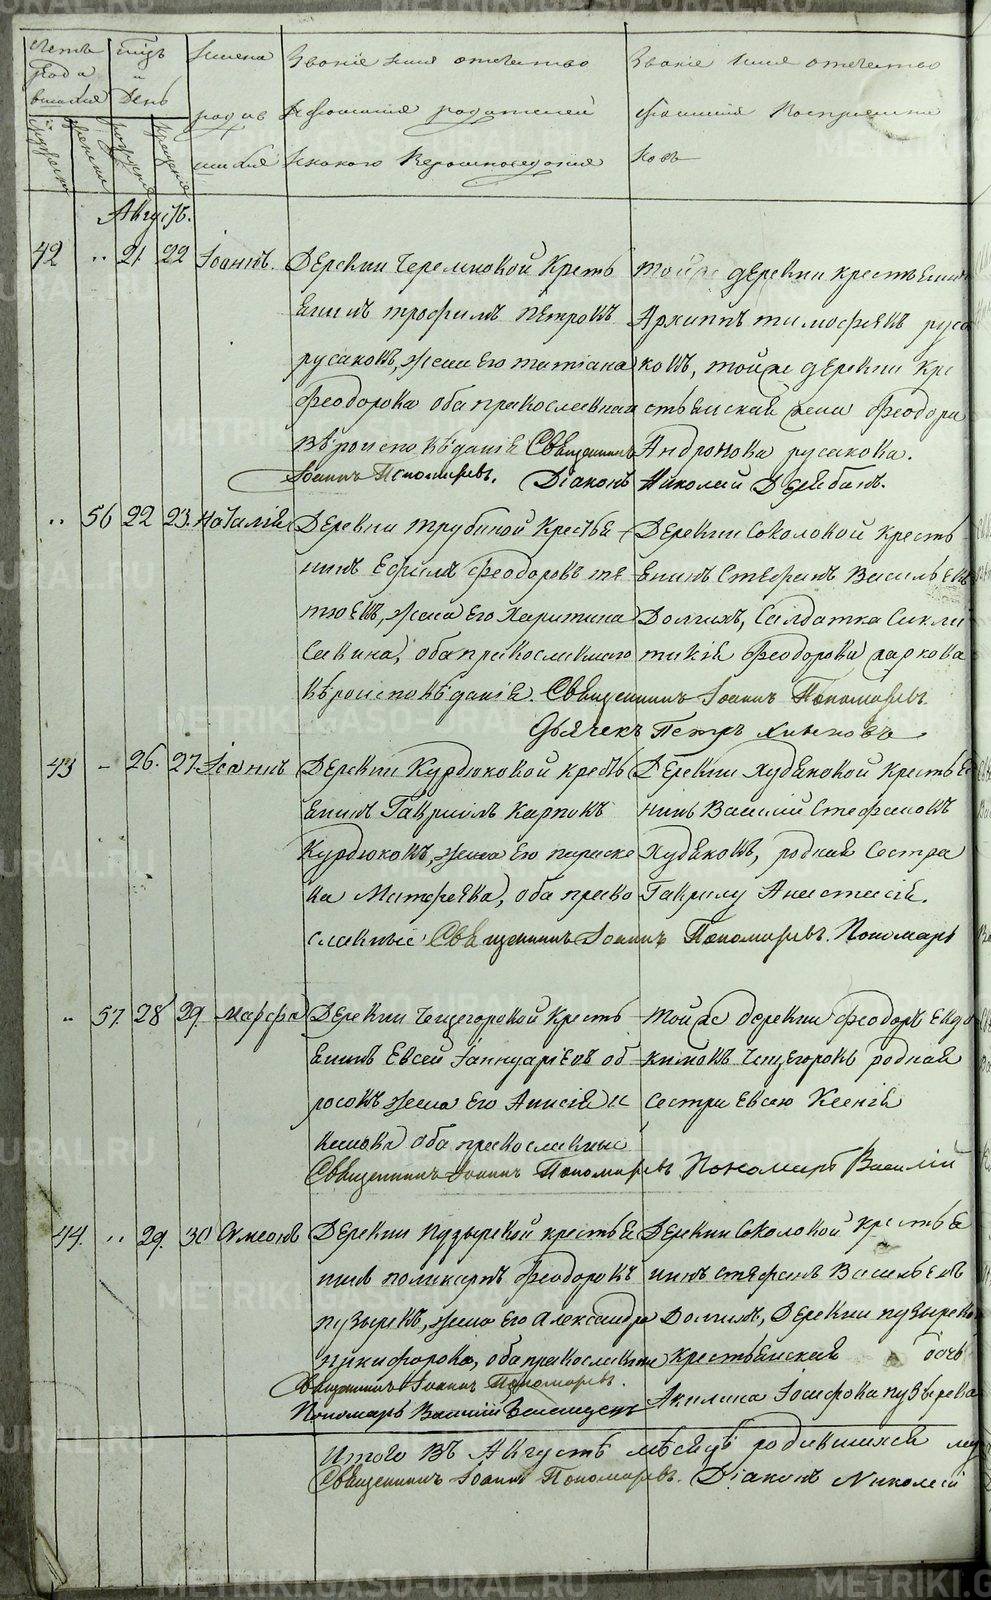 Счетъ Года
Мѣсяцъ и День
Имена родившихся
Званіе имя отечество
и фамилія родителей
и какого Вероисповеданія
Званіе имя отечество
фамилія Воспріемни
ковъ
Августъ.
42 21 22 Іоаннъ.
Деревни Черемновой Кресть
янинъ трофимъ Петровъ
русаковъ, жена его татіана
Феодорова оба православнаго
вѣроисповѣданія Священникъ
Іоаннъ Пономаревъ. Діаконъ Николай
той же деревни крестьянинъ
Архиппъ тимофеевъ руса
ковъ, той же деревни кре
стьянская жена Феодора
Андронова русакова.
56 22 23 Наталія
Деревни трубиной Крестья
нинъ Ефимъ Феодоровъ
жена его Харитина
Савина, оба православнаго
вѣроисповѣданія. Священникъ Іоаннъ Пономаревъ.
Дьячекъ Петръ
Деревни Соколовой Кресть
янинъ Стефанъ Васильевъ
Долгихъ, Салдатка
Феодорова
43 - 26. 27 Іоаннъ
Деревни Курдюковой кресть
янинъ Гавриилъ Карповъ
Курдюковъ, жена его параске
ва Матфеева, оба право
славные. Священникъ Іоаннъ Пономаревъ. Пономарь
Деревни Худяковой Крестья
нинъ Василій Стефановъ
Худяковъ, родная Сестра
Гаврилу Анастасія.
57. 28 29. Марфа
Деревни Чещегоровой Кресть
янинъ Евсей Іаннуаріевъ об
росовъ жена его Анисія
оба православные
Священникъ Іоаннъ Пономаревъ Пономарь Василій
той же деревни Феодоръ Евдо
кимовъ родная
сестра Евсею Ксенія
44. 29. 30 Симеонъ
Деревни пузыревой крестья
нинъ поликарпъ Феодоровъ
пузыревъ, жена его Александра
никифорова, оба православные
Священникъ Іоаннъ Пономаревъ.
Пономарь Василій
Деревни Соколовой Крестья
нинъ стефанъ Васильевъ
Долгихъ, Деревни пузыревой
крестьянская дочь
Акилина Іосифова пузырева
Итого въ Августѣ мѣсяцѣ родившихся
Священникъ Іоаннъ Пономаревъ. Діаконъ Николай
METRIKI.GASO-URAL.RU